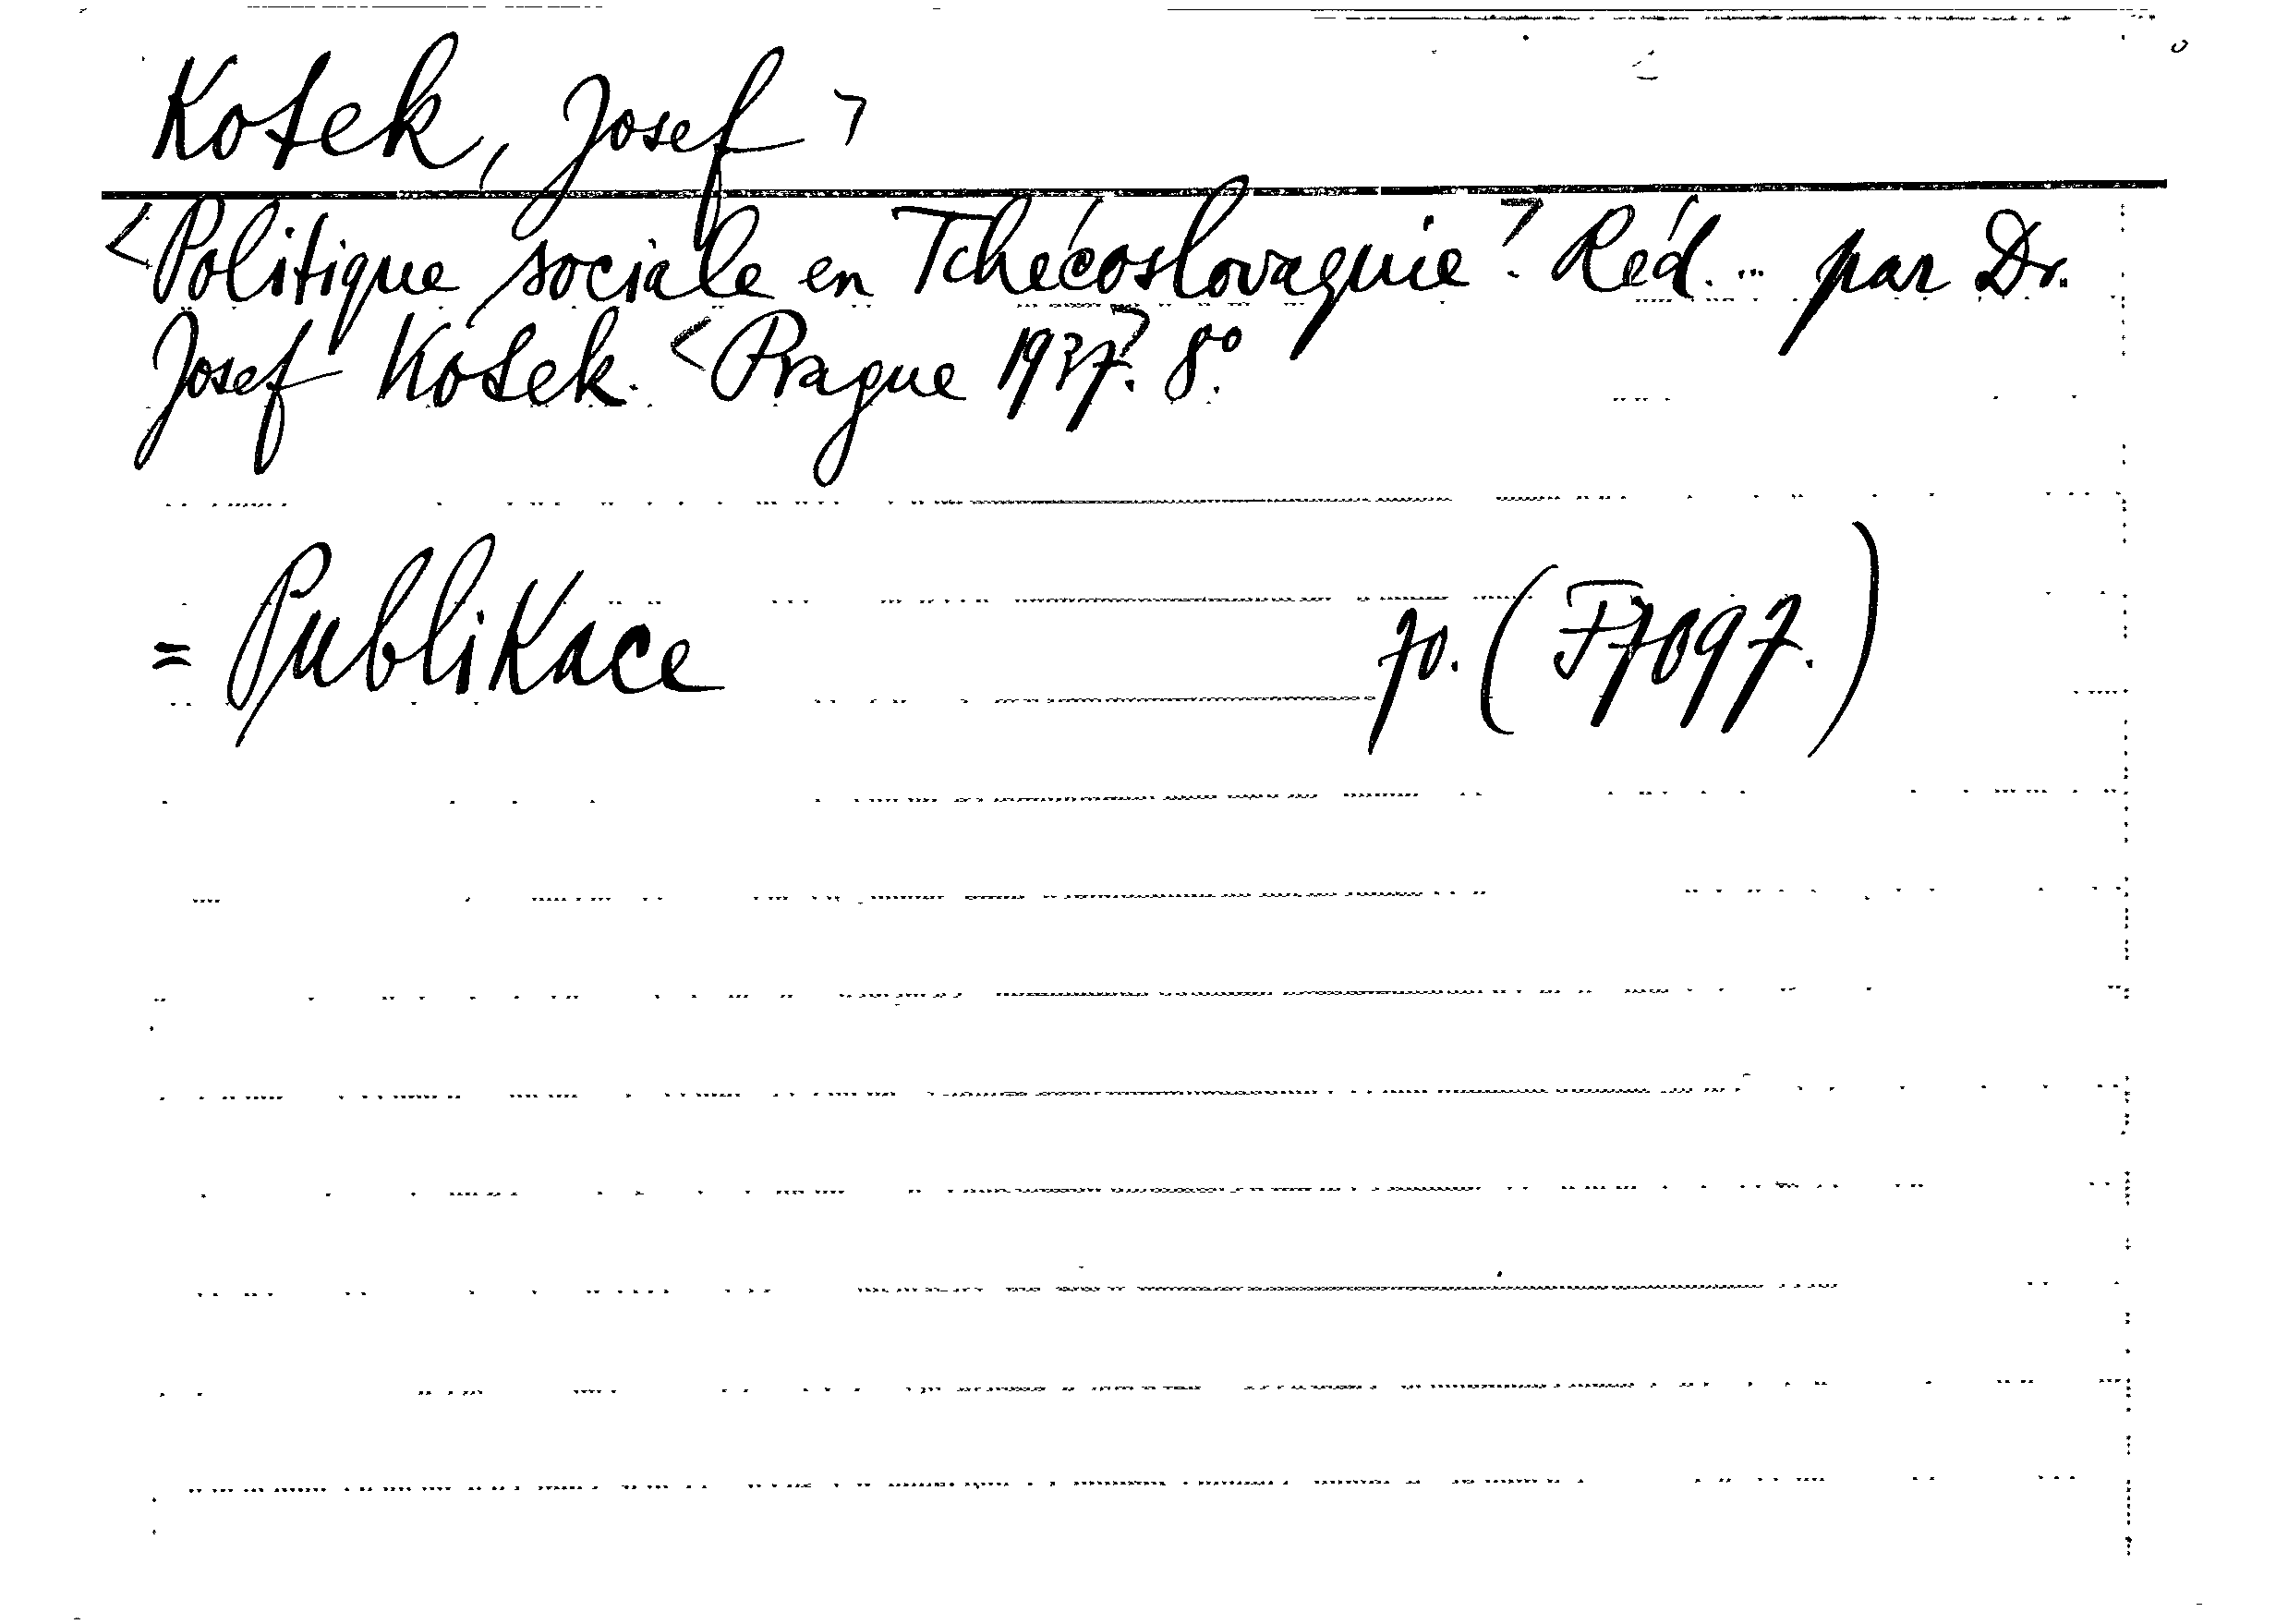 Kotek, Josef >
<Politique sociale en Tchécoslovaquie>. Réd. ... par Dr.
Josef Kotek. <Prague 1937>. 8°.
= Publikace 70. (F7097.)